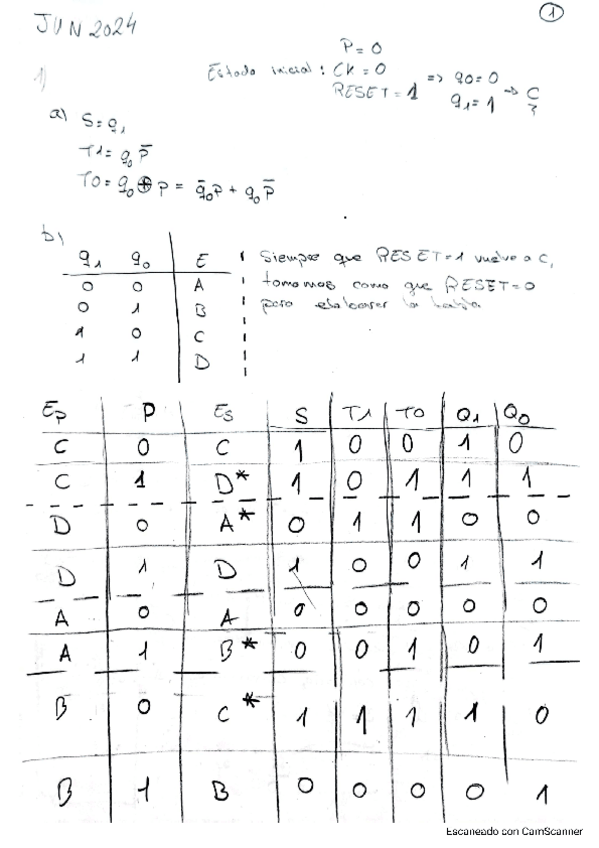 1
JUN 2024
P = 0
Estado inicial : CK = 0 => q0 = 0 → C
RESET = 1 q1 = 1
1)
a) S = q1
T1 = q0 P̅
T0 = q0 ⊕ P = q̅0 P + q0 P̅
b)
q1 q0 E
0 0 A
0 1 B
1 0 C
1 1 D
Siempre que RESET=1 vuelve a C,
tomamos como que RESET=0
para elaborar la tabla
EP P ES S T1 T0 Q1 Q0
C 0 C 1 0 0 1 0
C 1 D* 1 0 1 1 1
D 0 A* 0 1 1 0 0
D 1 D 1 0 0 1 1
A 0 A 0 0 0 0 0
A 1 B* 0 0 1 0 1
B 0 C* 1 1 1 1 0
B 1 B 0 0 0 0 1
Escaneado con CamScanner